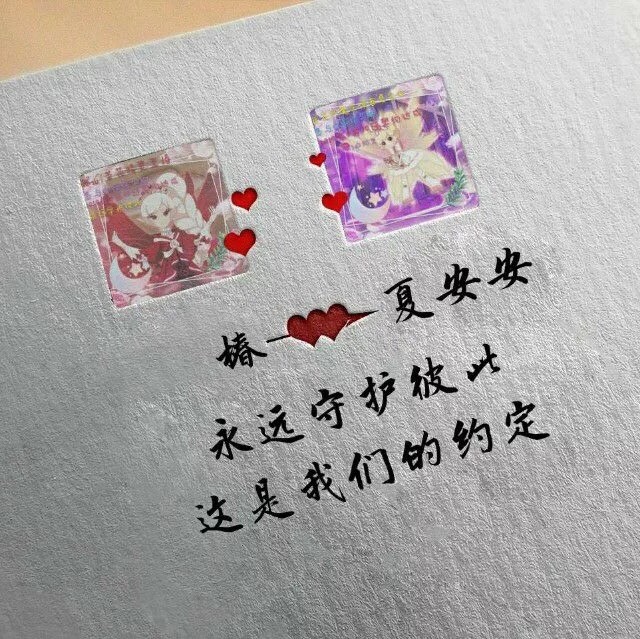 椿 夏安安
永远守护彼此
这是我们的约定